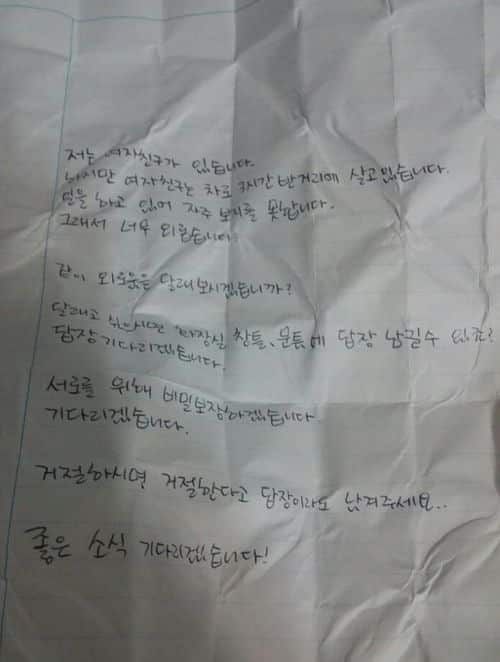 저는 여자친구가 있습니다.
하지만 여자친구는 차로 3시간 반거리에 살고있습니다.
일을 하고 있어 자주 보지를 못합니다.
그래서 너무 외롭습니다.
같이 외로움을 달래보시겠습니까?
달래고 싶으시면 화장실 창틀, 문틈에 답장 남길수 있죠?
답장 기다리겠습니다.
서로를 위해 비밀보장하겠습니다.
기다리겠습니다.
거절하시면 거절한다고 답장이라도 남겨주세요..
좋은 소식 기다리겠습니다!